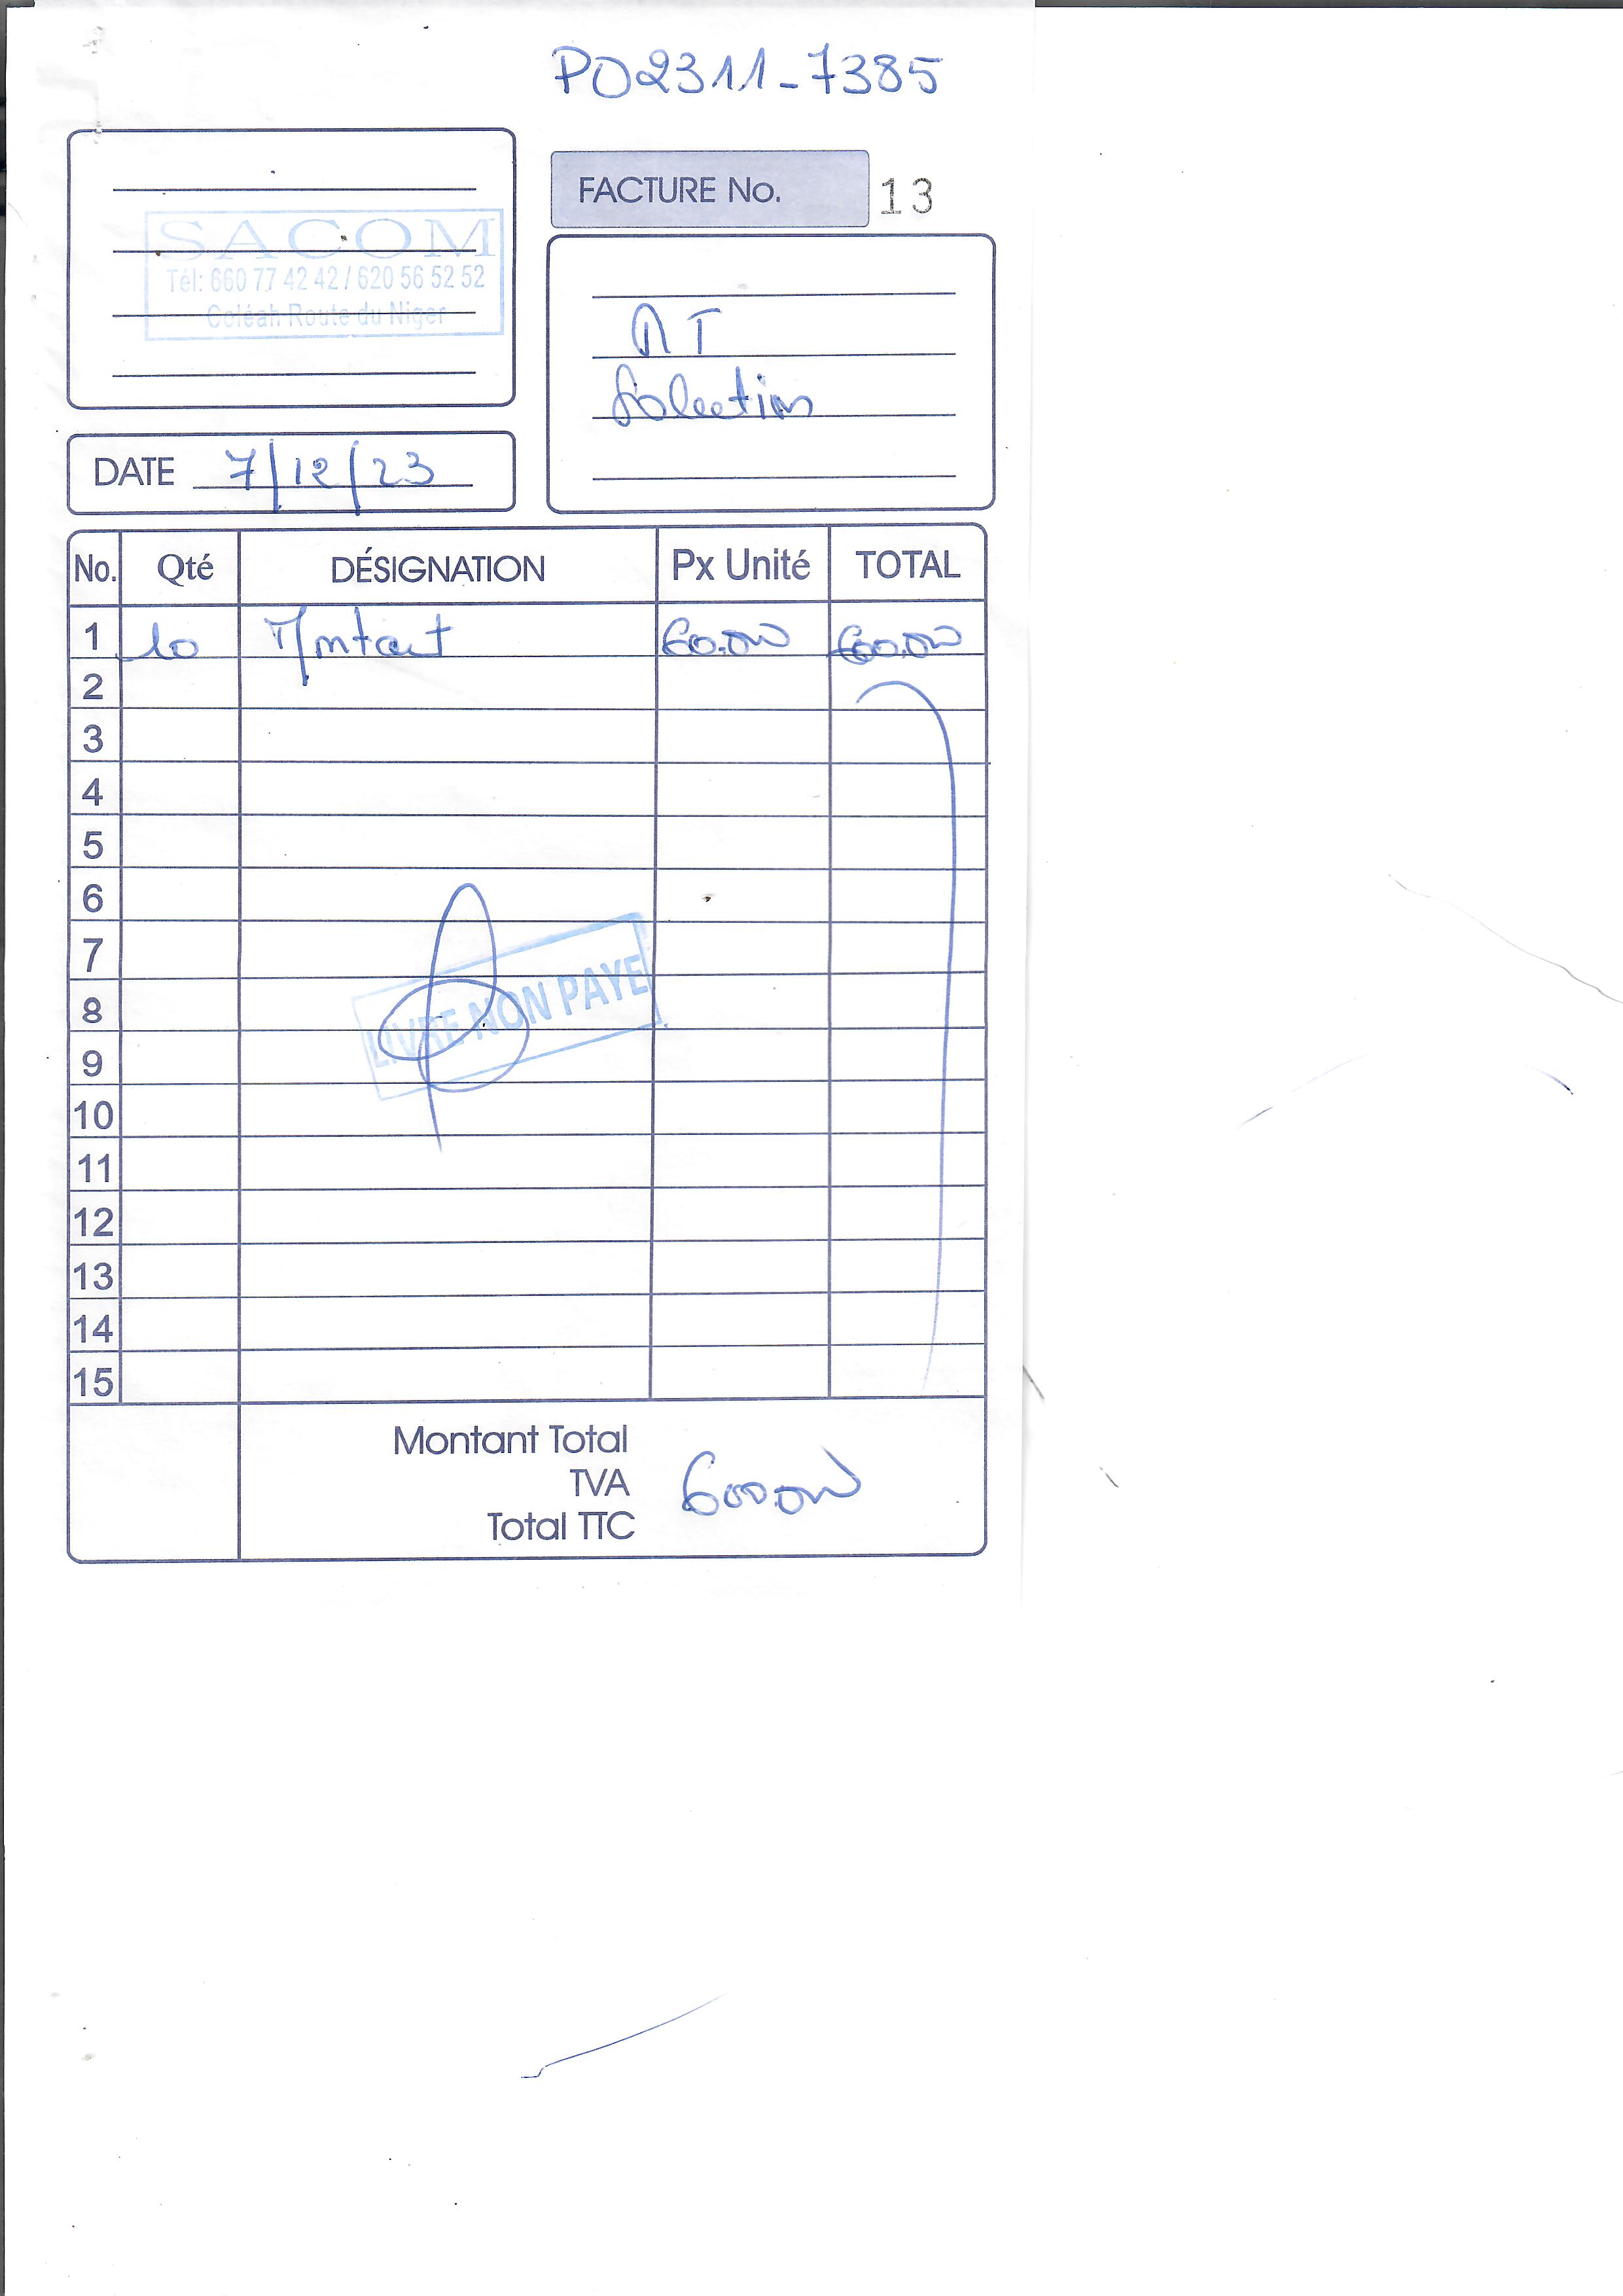 PO2311-7385
FACTURE No. 13
SACOM
Tél: 660 77 42 42 / 620 56 52 52
Coléah Route du Niger
DATE 7/12/23
No. Qté DÉSIGNATION Px Unité TOTAL
1 10 60.000 600.000
2
3
4
5
6
7
8
9
10
11
12
13
14
15
LIVRE NON PAYE
Montant Total
TVA 600.000
Total TTC